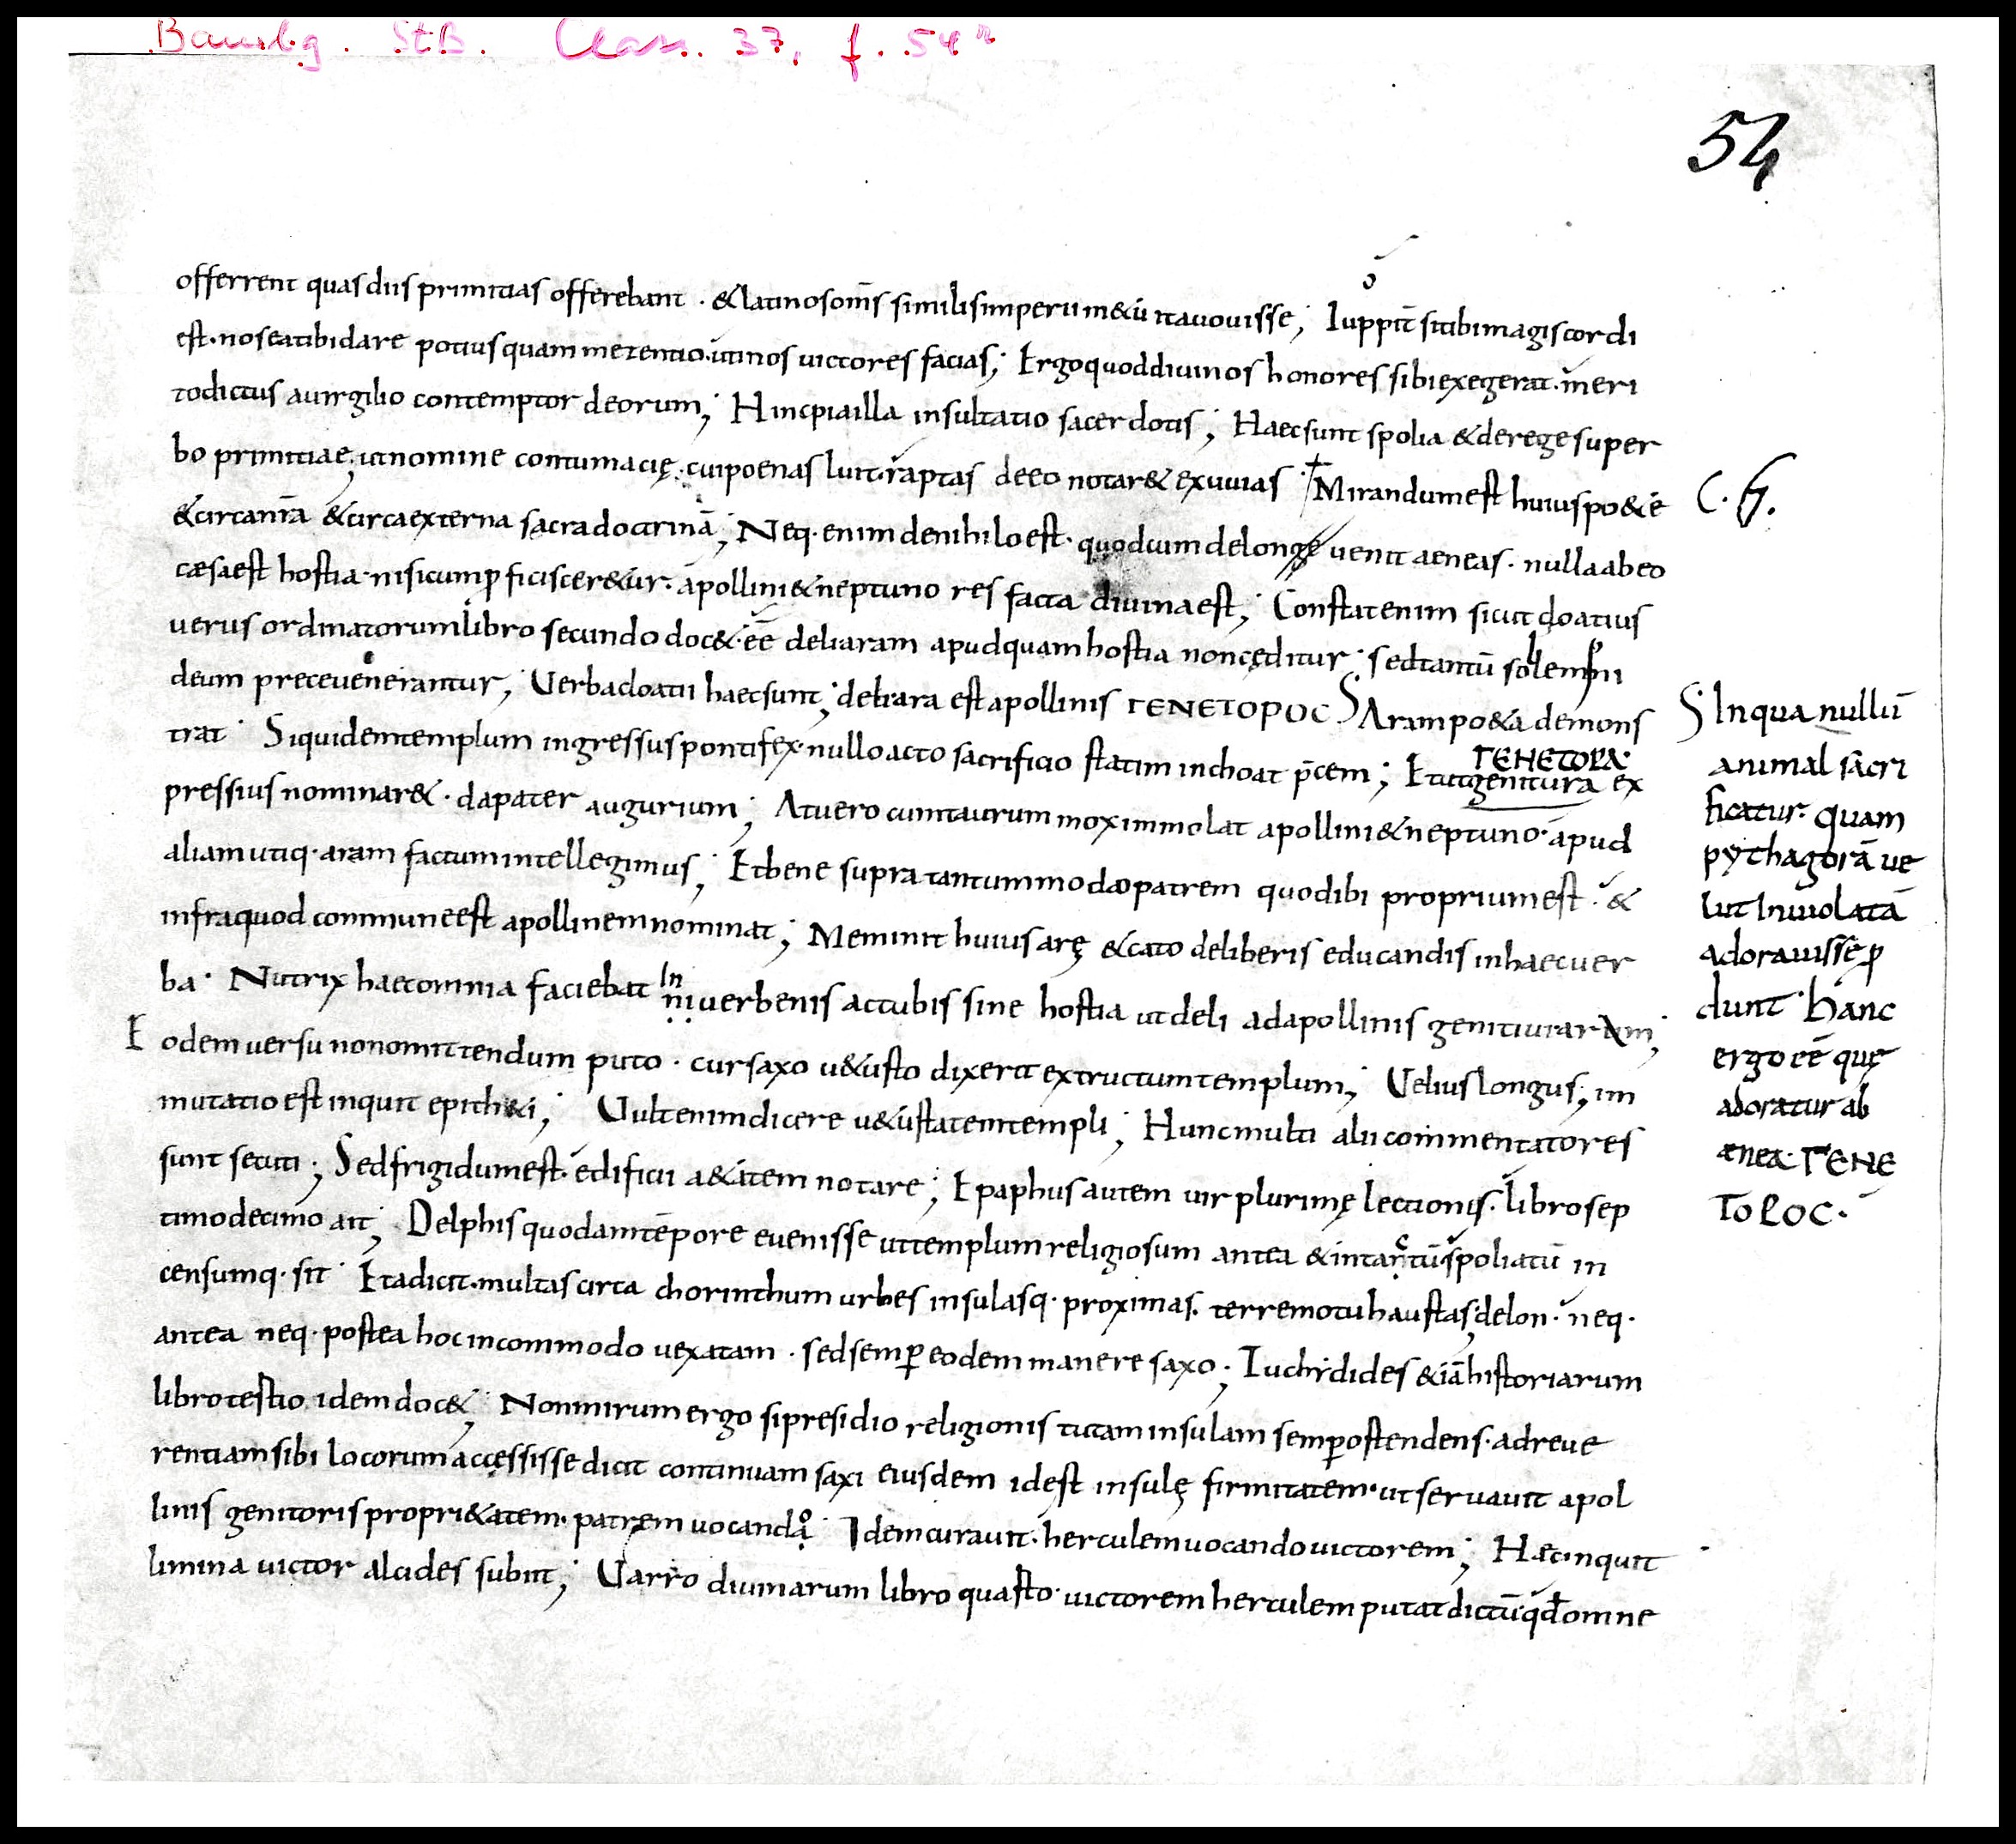 Bambg. StB. Class. 37, f. 54r
54
offerrent quas diis primitias offerebant · & latinos om̄s similis imperium & ū ita uouisse; Iuppit̄ si tibi magis cordi
est· nos ea tibi dare potius quam mezentio· uti nos uictores facias; Ergo quod diuinos honores sibi exegerat· meri
to dictus a uirgilio contemptor deorum; Hinc pia illa insultatio sacerdotis; Haec sunt spolia & de rege super
bo primitiae; ut nomine contumacię· cui poenas luit· raptas de eo notar& exuuias · Mirandum est huius po&ē
& circa nr̄a & circa externa sacra doctrinā; Neq· enim de nihilo est· quod cum delon ge uenit aeneas· nulla ab eo
cæsa est hostia· nisi cum p̱ficiscer&ur· apollini & neptuno res facta diuina est; Constat enim sicut cloatius
uerus ordinatorum libro secundo doc&· eē deli aram apud quam hostia non cęditur; sed tantū sollempni
deum prece uenerantur; Uerba cloatii haec sunt; deli ara est apollinis ΓENETOPOC S Λ ram po&a demons
trat · Siquidem templum ingressus pontifex· nullo acto sacrificio statim inchoat p̄cem; Et ut genitura ex
ΓENETOPA·
pressius nominar&· da pater augurium; At uero cum taurum mox immolat apollini & neptuno· apud
aliam utiq· aram factum intellegimus; Et bene supra tantum modo patrem quod ibi proprium est· &
infra quod commune est apollinem nominat; Meminit huius arę & cato de liberis educandis in haec uer
ba· Nutrix haec omnia faciebat In ni uerbenis ac tubis sine hostia ut deli ad apollinis genitiui aram;
Eodem uersu non omittendum puto· cur saxo u&usto dixerit extructum templum; Uelius longus; im
mutatio est inquit epith&i; Uult enim dicere u&ustatem templi; Hunc multi alii commentatores
sunt secuti; Sed frigidum est· edificii a&atem notare; Epaphus autem uir plurimę lectionis· libro sep
timo decimo ait; Delphis quodam tēpore euenisse ut templum religiosum antea & intanctū spoliatū in
censumq· sit· Et adicit· multas circa chorinthum urbes insulasq· proximas· terremotu haustas; delon· neq·
antea neq· postea hoc incommodo uexatam· sed semp̱ eodem manere saxo; Tuchidides &iā historiarum
libro testio idem doc&; Non mirum ergo si presidio religionis tutam insulam semp̱ ostendens· ad reue
rentiam sibi locorum accęssisse dicit continuam saxi eiusdem id est insulę firmitatem· ut seruauit apol
linis genitoris propri&atem· patrem uocando; Idem curauit· herculem uocando uictorem; Hæc inquit
limina uictor alcides subiit; Uarro diuinarum libro quasto· uictorem herculem putat dictū qđ omne
C. G.
S In qua nullū
animal sacri
ficatur· quam
pythagorā ue
lut Inuiolatā
adorauisse p̱
dunt· Hanc
ergo eē quę
adoratur ab
ænea· ΓENE
ToPOC·